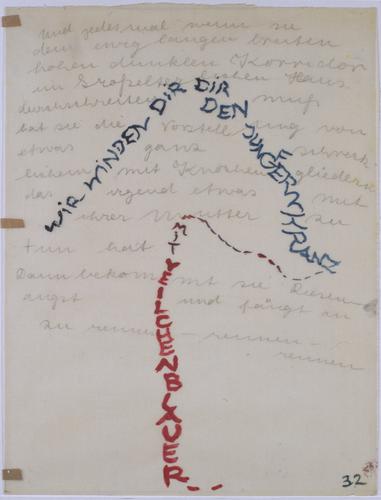 und jedesmal wenn sie
den ewig langen breiten
hohen dunklen Korridor
im Großelterlichen Haus
durchschreiten muß
hat sie die Vorstellung von
etwas ganz schreck-
lichem mit Knochengliedern
das irgend etwas mit
ihrer Mutter zu
tun hat
Dann bekommt sie Riesen-
angst und fängt an
zu rennen – rennen –
rennen
WIR WINDEN DIR DIR DEN JUNGFERNKRANZ
MIT VEILCHENBLAUER
32